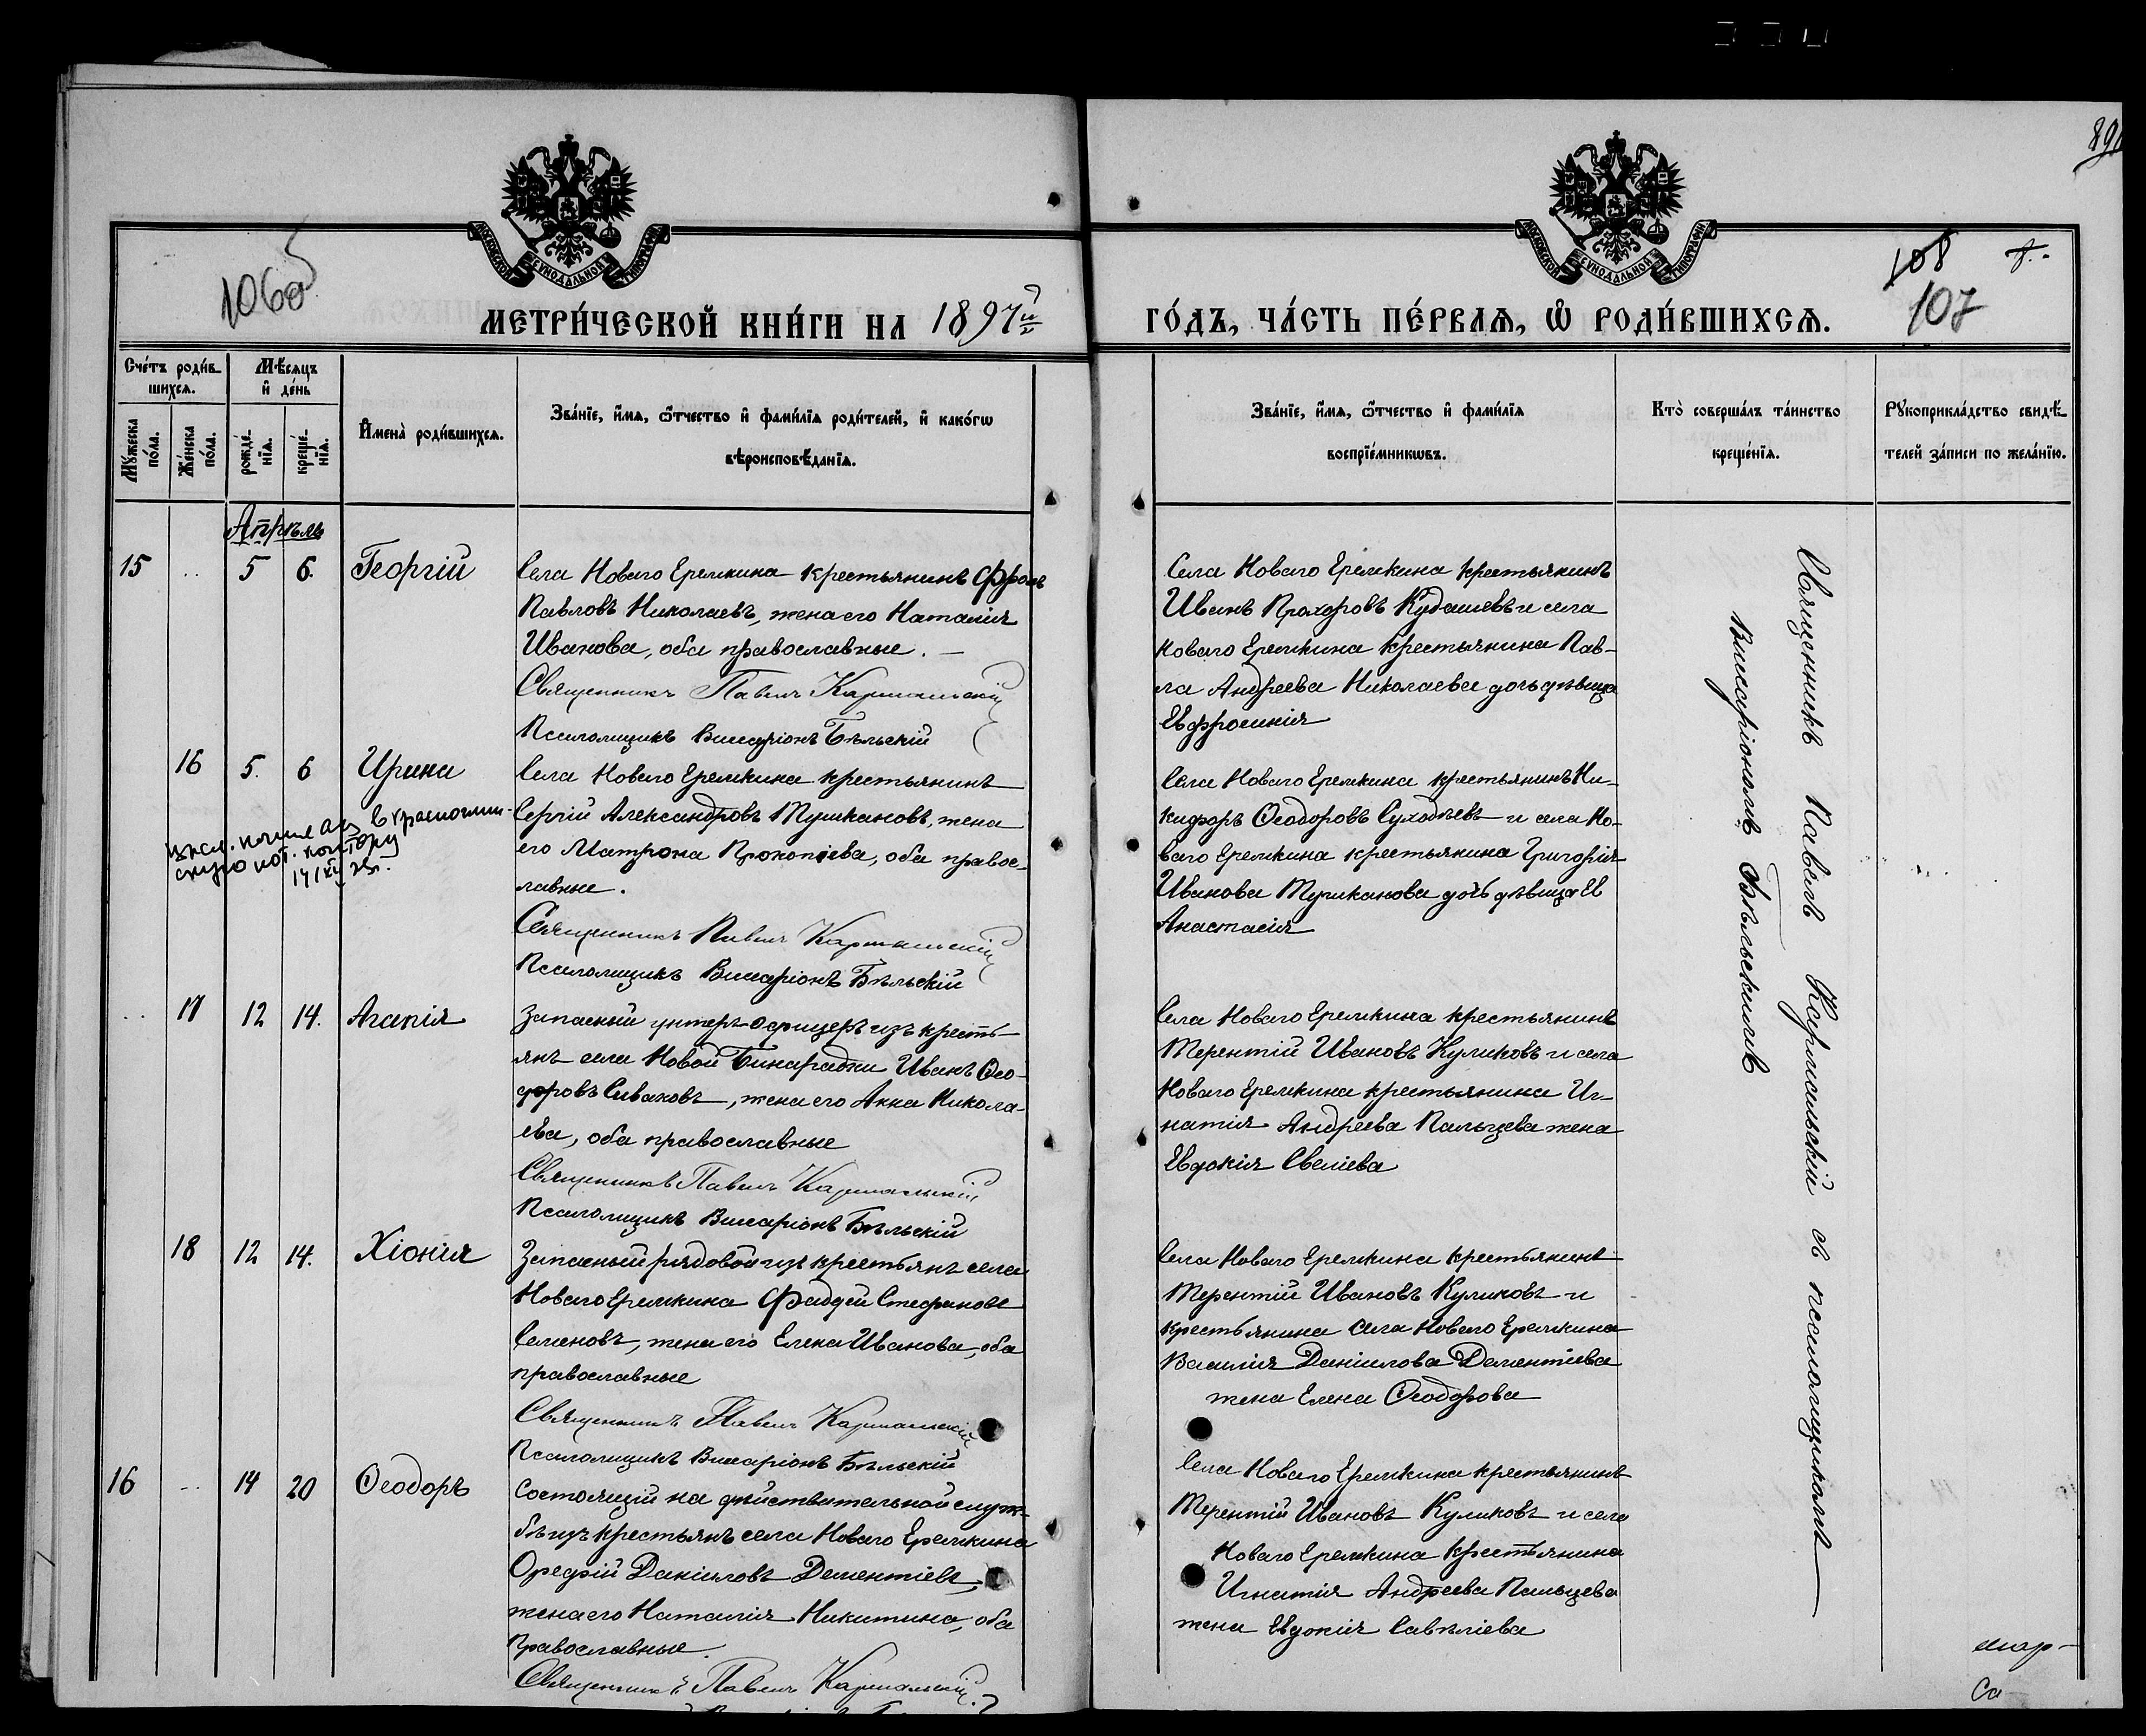 891
МОСКОВСКОЙ СУНОДАЛЬНОЙ ТИПОГРАФІИ
МОСКОВСКОЙ СУНОДАЛЬНОЙ ТИПОГРАФІИ
108
107
МЕТРИ́ЧЕСКОЙ КНИ́ГИ НА 1897й
ГО́ДЪ, ЧА́СТЬ ПЕ́РВАЯ, Ѽ РОДИ́ВШИХСЯ.
Сче́тъ роди́в-
шихся.
Мѣ́сяцъ
и҆ де́нь
Мꙋ́жеска
по́ла.
Же́нска
по́ла.
рожде́-
нїя.
креще́-
нїя.
И҆мена̀ роди́вшихся.
Зва́нїе, и҆́мя, ѻ҆́тчество и҆ фамі́лїя роди́телей, и҆ како́гѡ
вѣроисповѣ́данїя.
Зва́нїе, и҆́мя, ѻ҆́тчество и҆ фами́лїя
воспрїе́мникѡвъ.
Кто̀ соверша́лъ та́инство
креще́нїя.
Рꙋкоприкла́дство свидѣ́-
телей за́писи по жела́нїю.
Апрѣль
15 .. 5 6. Георгій
Села Новаго Еремкина крестьянинъ Фролъ
Павловъ Николаевъ, жена его Наталія
Иванова, оба православные. —
Священникъ Павелъ Кармальскій
Псаломщикъ Виссаріонъ Бѣльскій
Села Новаго Еремкина крестьянинъ
Иванъ Прохоровъ Кудашевъ и села
Новаго Еремкина крестьянина Пав-
ла Андреева Николаева дочь дѣвица
Евфросинія
16 5. 6 Ирина
Села Новаго Еремкина крестьянинъ
Сергій Александровъ Мушкановъ, жена
его Матрона Прокопіева, оба право-
славные.
Священникъ Павелъ Кармальскій
Псаломщикъ Виссаріонъ Бѣльскій
Села Новаго Еремкина крестьянинъ Ни-
кифоръ Ѳеодоровъ Суходѣевъ и села Но-
ваго Еремкина крестьянина Григорія
Иванова Мушканова дочь дѣвица
Анастасія
нот. контору
.. 17 12 14. Агапія
Запасный унтеръ-офицеръ изъ кресть-
янъ села Новой Бинарадки Иванъ Ѳео-
доровъ Сиваковъ, жена его Анна Никола-
ева, оба православные
Священникъ Павелъ Кармальскій
Псаломщикъ Виссаріонъ Бѣльскій
Села Новаго Еремкина крестьянинъ
Терентій Ивановъ Куликовъ и села
Новаго Еремкина крестьянина Иг-
натія Андреева Пальцева жена
Евдокія
18 12 14. Хіонія
Запасный рядовой изъ крестьянъ села
Новаго Еремкина Фаддей Стефановъ
Семеновъ, жена его Елена Иванова, оба
православные
Священникъ Павелъ Кармальскій
Псаломщикъ Виссаріонъ Бѣльскій
Села Новаго Еремкина крестьянинъ
Терентій Ивановъ Куликовъ и
крестьянина села Новаго Еремкина
Василія Даніилова Дементіева
жена Елена Ѳеодорова
16 .. 14 20 Ѳеодоръ
Состоящій на дѣйствительной служ-
бѣ изъ крестьянъ села Новаго Еремкина
Орефій Даніиловъ Дементіевъ,
жена его Наталія Никитина, оба
православные.
Священникъ Павелъ Кармальскій
Села Новаго Еремкина крестьянинъ
Терентій Ивановъ Куликовъ и села
Новаго Еремкина крестьянина
Игнатія Андреева Пальцева
жена Евдокія Савеліева
Священникъ Павелъ Кармальскій съ псаломщикомъ
Виссаріономъ Бѣльскимъ